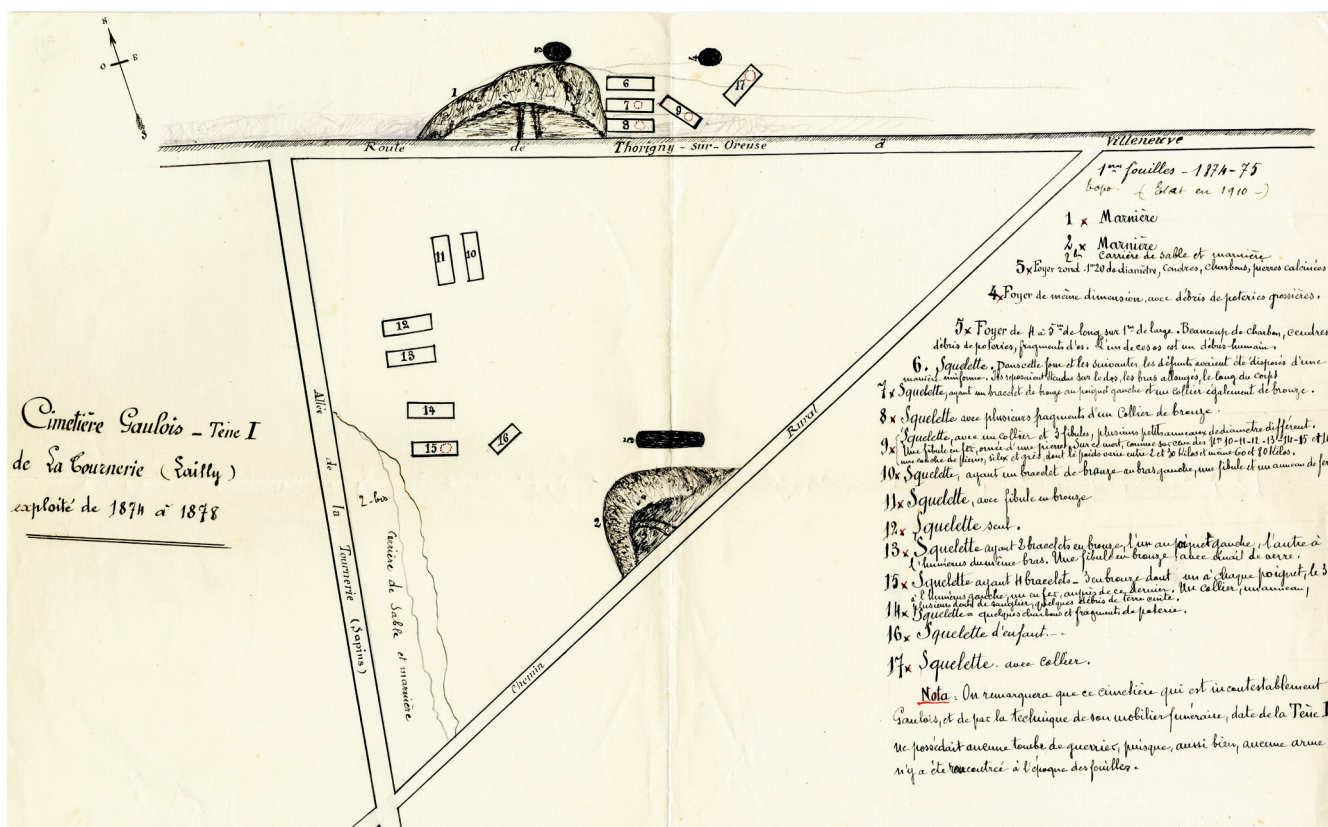 N
O
E
1
6
7
8
9
17
Route de Thorigny-sur-Oreuse à Villeneuve
11
10
12
13
14
15
16
2
Allée de la Tournerie (Sapins)
2-bis
Carrière de Sable et marnière
Chemin Rural
Cimetière Gaulois _ Tène I
de La Tournerie (Lailly)
exploité de 1874 à 1878
fouilles - 1874-75
(Etat en 1910 -)
1 x Marnière
2 x Marnière
2 bis Carrière de sable et marnière
5 x Foyer rond - 1m20 de diamètre, Cendres, Charbons, pierres calcinées
4 x Foyer de même dimension, avec débris de poteries grossières.
5 x Foyer de 4 à 5m de long sur 1m de large. Beaucoup de charbon, cendres
débris de poteries, fragments d'os. L'un de ces os est un débris humain.
6. Squelette. Dans cette fosse et les suivantes, les défunts avaient été disposés d'une
manière uniforme. Ils reposaient étendus sur le dos, les bras allongés, le long du corps
7 x Squelette, ayant un bracelet de bronze au poignet gauche et un collier également de bronze.
8 x Squelette avec plusieurs fragments d'un Collier de bronze.
9 x Squelette, avec un collier et 3 fibules, plusieurs petits anneaux de diamètre différent.
Une fibule en fer, ornée d'une pierre. Sur ce mort, comme sur ceux des Nos 10-11-12-13-14-15 et 16
une couche de pierres, silex et grès, dont le poids varie entre 2 et 30 Kilos et même 60 et 80 Kilos.
10 x Squelette, ayant un bracelet de bronze au bras gauche, une fibule et un anneau de fer
11 x Squelette, avec fibule en bronze
12 x Squelette seul.
13 x Squelette ayant 2 bracelets en bronze, l'un au poignet gauche, l'autre à
l'humérus du même bras. Une fibule en bronze avec émail de verre.
15 x Squelette ayant 4 bracelets - 3 en bronze dont un à chaque poignet, le 3
à l'humérus gauche, un en fer, auprès de ce dernier. Un collier, un anneau,
plusieurs dents de sanglier, quelques débris de terre cuite.
14 x Squelette = quelques charbons et fragments de poterie.
16 x Squelette d'enfant.--
17 x Squelette. avec collier.
Nota : On remarquera que ce cimetière qui est incontestablement
Gaulois, et de par la technique de son mobilier funéraire, date de la Tène I
ne possédait aucune tombe de guerrier, puisque, aussi bien, aucune arme
n'y a été rencontrée à l'époque des fouilles.